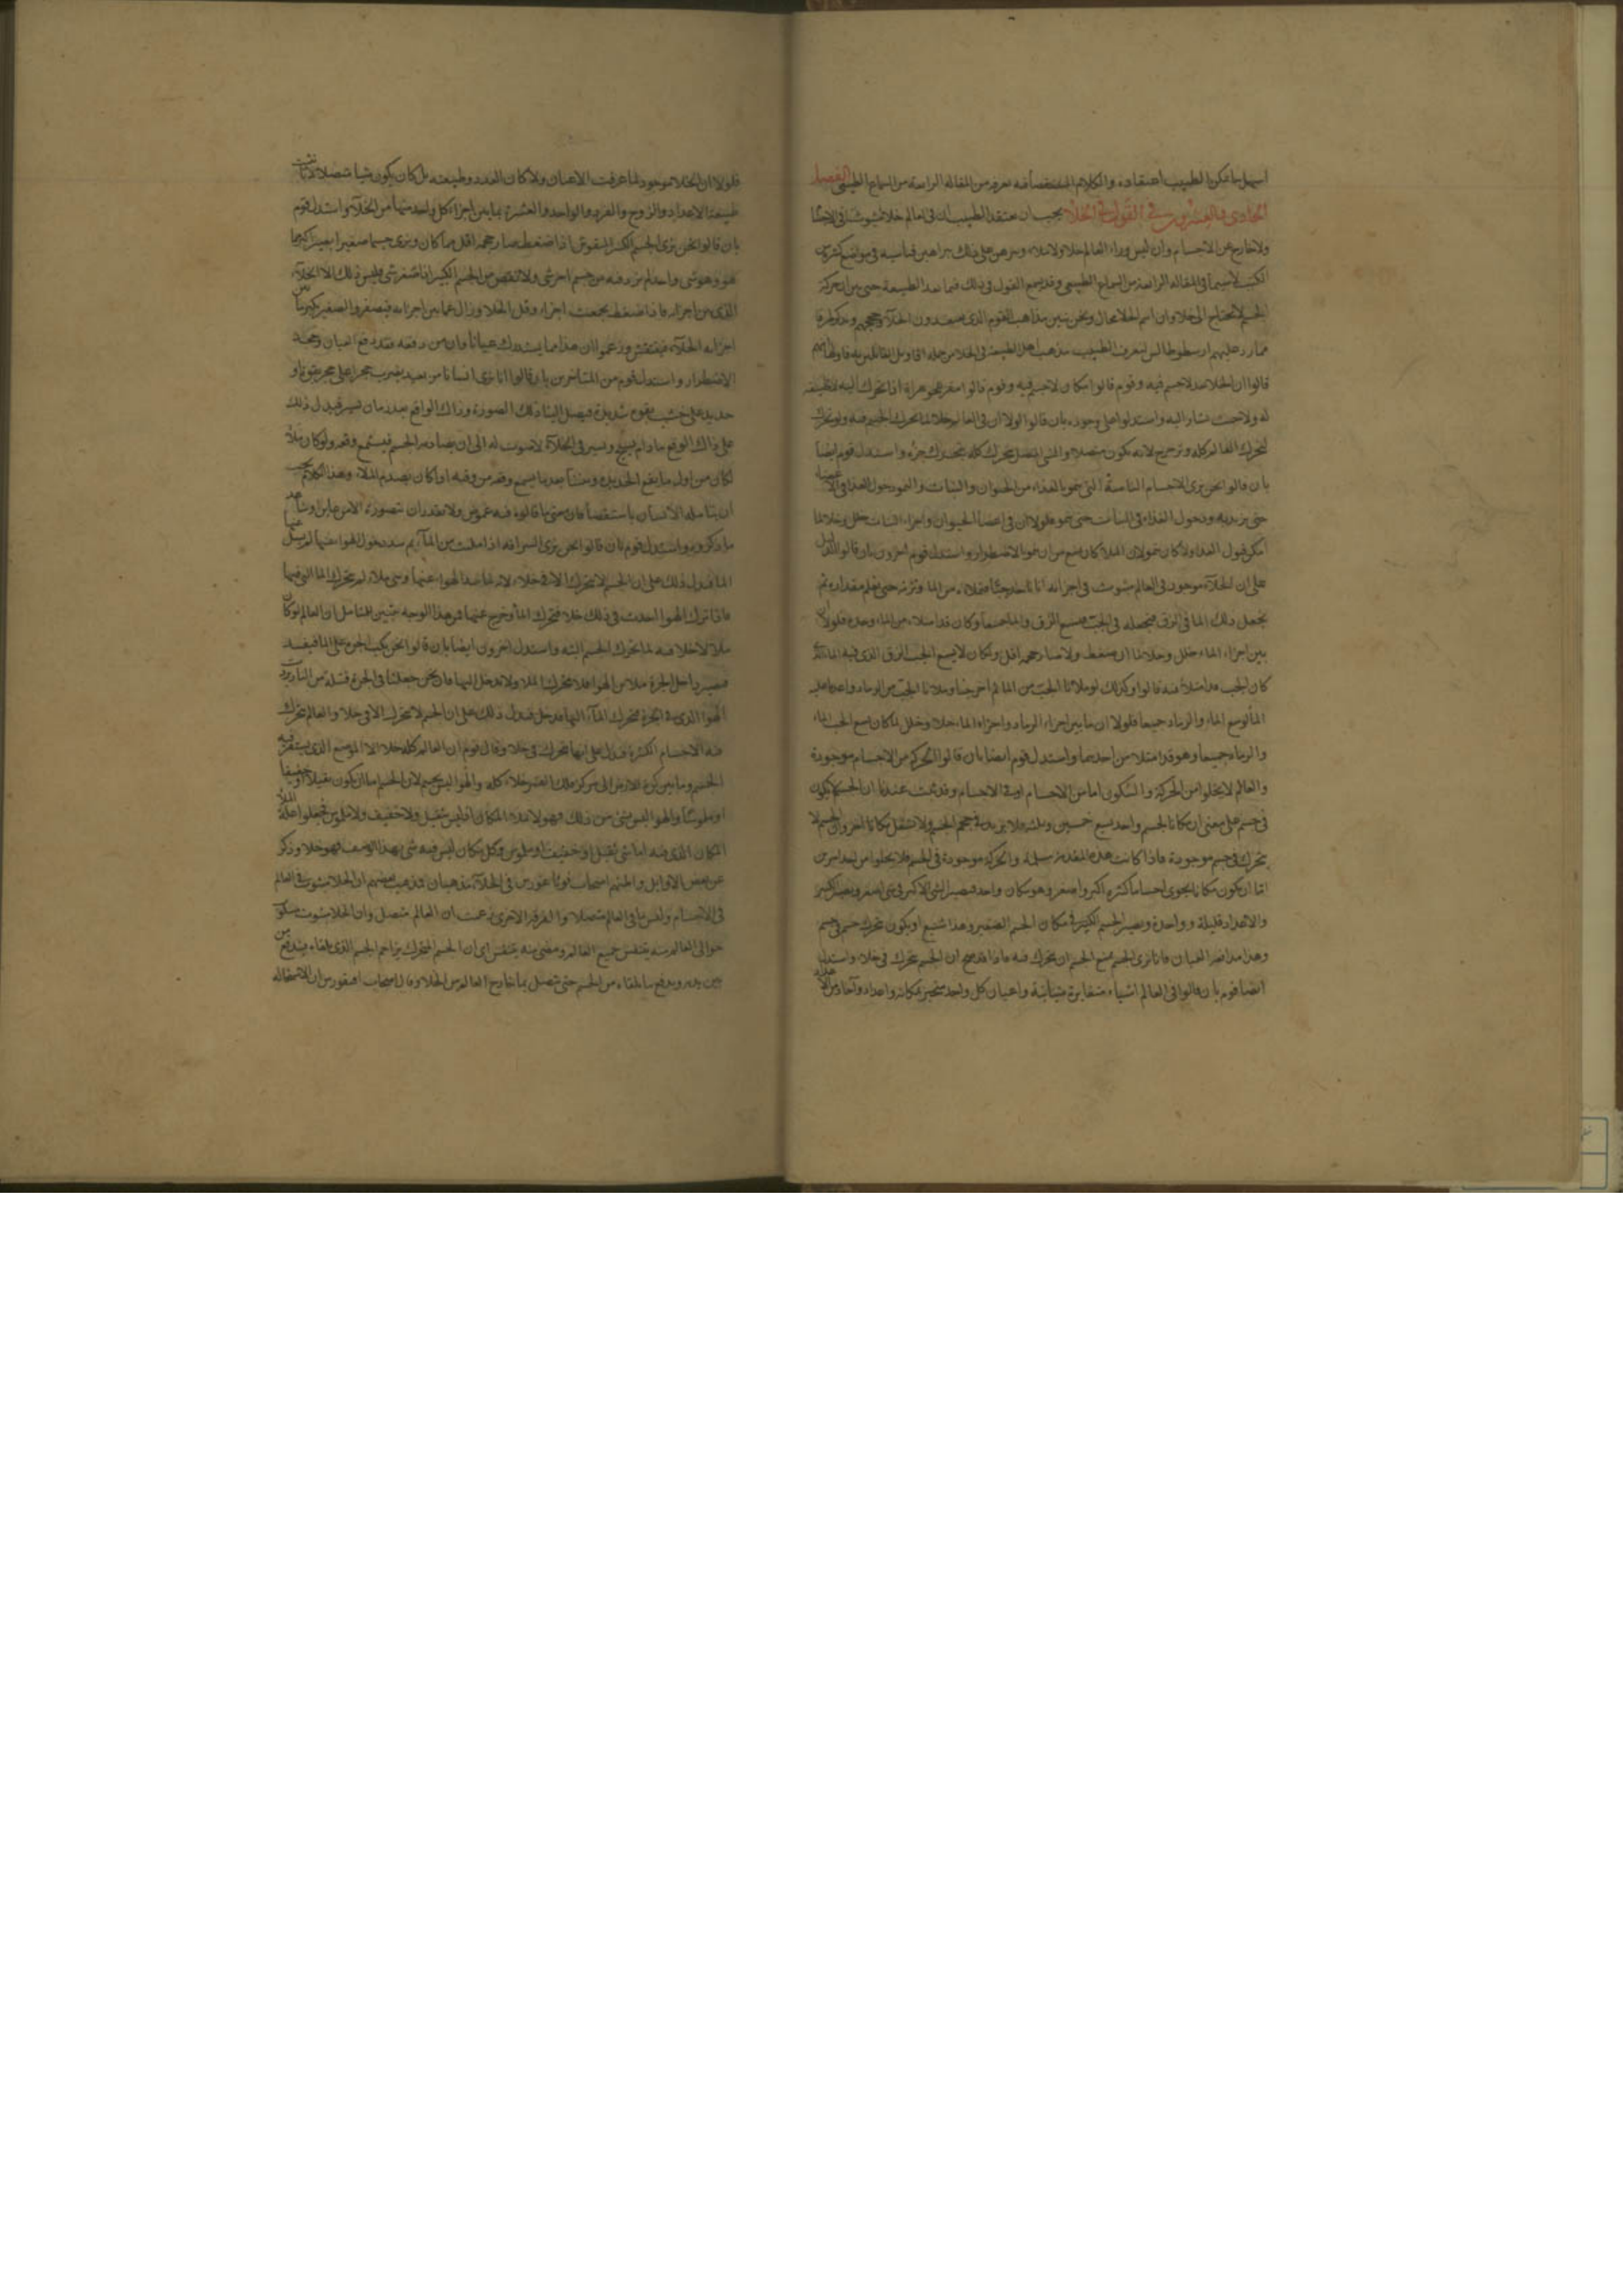 اسهل ما يمكن الطبيب اعتقاده والكلام المستقصا فيه تعرفه من المقالة الرابعة من السماع الطبيعي الفصل
الحادى والعشرون في القول في الخلا يجب ان يعتقد الطبيب ان ليس فى العالم خلا مبثوثا فى الاجسام
ولا خارج عن الاجسام وان ليس وراء العالم خلا ولا ملاء وبرهن على ذلك براهين قياسية فى مواضع كثيرة من
الكتب لا سيما فى المقالة الرابعة من السماع الطبيعى وقد يتبع القول فى ذلك فيما بعد الطبيعة حتى بين ان حركة
الجسم لا تحتاج الى خلا وان اسم الخلا محال ونحن نبين مذاهب القوم الذى يعتقدون الخلاء وحججهم ونذكر طرفا
مما رد عليهم ارسطوطاليس ليعرف الطبيب مذهب اهل الطبيعة فى الخلا من جملة اقاويل القائلين به
قالوا ان الخلا بعد لا جسم فيه وقوم قالوا مكان لا جسم فيه وقوم قالوا
له ولا جثة يشار اليه واستدلوا على وجوده بان قالوا لولا ان فى العالم خلا لما تحرك الجسم فيه ولو تحرك
لتحرك العالم كله لانه يكون متصلا والشى المتصل يتحرك كله بتحرك جزؤه واستدل قوم ايضا
بان قالوا نحن نرى الاجسام النامية التى تنمو بالغذاء من الحيوان والنبات والنمو دخول الغذا فى الاعضا
حتى يزيد به ودخول الغذاء فى النبات حتى ينمو فلولا ان فى اعضا الحيوان واجزاء النبات خلل وخلا لما
امكن قبول الغذا ولا كان نمو لان الملا كان يمنع من ان ينمو الاضطرار واستدل قوم اخرون بان قالوا الدليل
على ان الخلاء موجود فى العالم مبثوث فى اجزائه انا ناخذ جبا فنملاه من الما ونزنه حتى نعلم مقداره ثم
نجعل ذلك الما فى الزق فنجعله فى الجب فيسع الزق والماء جميعا وكان قد امتلاء من الماء وحده فلولا ان
بين اجزاء الماء خلل وخلا لما ان ضغط ولا صار حجمه اقل ولكان لا يسع الجب الزق الذى فيه الماء اذ
كان الجب قد امتلا منه قالوا وكذلك لو ملانا الجب من الما ثم اخرجنا وملانا الجب من الرماد واعدنا عليه
الما لوسع الماء والرماد جميعا فلولا ان ما بين اجزاء الرماد واجزاء الماء خلا وخلل لما كان يسع الجب الماء
والرماد جميعا وهو قد امتلا من احدهما واستدل قوم ايضا بان قالوا الحركة من الاجسام موجودة
والعالم لا يخلوا من الحركة والسكون اما من الاجسام او فى الاجسام وقد ثبت عندنا ان الجسم لا يكون
فى جسم على معنى ان مكانا لجسم واحد يسع جسمين وثلثه ولا يزيد فى حجم الجسم ولا ينتقل مكانا اخر وان الجسم لا
يتحرك فى جسم موجودة فاذا كانت هذه المقدمة مسلمة والحركة موجودة فى الجسم فلا يخلوا من احد امرين
اما ان يكون مكانا يحوى اجساما كثيرة اكبر واصغر وهو مكان واحد فيصير الشى الاكبر فى شى اصغر ويصير الكثير
والاعداد قليلة وواحدة ويصير الجسم الكبير فى مكان الجسم الصغير وهذا شنيع او يكون تحرك جسم فى جسم
وهذا مدافعة العيان فانا نرى الجسم يمنع الجسم ان يتحرك فيه فاذا قد صح ان الجسم يتحرك فى خلاء واستدل
ايضا قوم بان قالوا فى العالم اشياء متغايرة متباينة واعيان كل واحد متحيز بمكانه واعداد وآحاد من الاعداد
فلولا ان الخلا موجود لما عرفت الاعيان ولا كان العدد وطبيعته بل كان يكون شيا متصلا لا
طبيعة الاعداد والزوج والفرد والواحد والعشرة بما بين اجزاء كل واحد منهما من الخلاء واستدل قوم
بان قالوا نحن نرى الجسم الكبير المنفوش اذا ضغط صار حجمه اقل مما كان ونرى جسما صغيرا يصير كبيرا
هو وهو شى واحد لم يزد فيه من جسم اخر شى ولا نقص من الجسم الكبير اذا صغر شى وليس ذلك الا الخلاء
الذى بين اجزائه فاذا ضغط تجمعت اجزاؤه وقل الخلا وزال عما بين اجزائه فيصغر والصغير يكبر من
اجزائه الخلاء فينتفش وزعموا ان هذا مما يستدرك عيانا وان من دفعه فقد دفع العيان وجحد
الاضطرار واستدل قوم من المتاخرين بان قالوا انا نرى انسانا من بعيد يضرب بحجر على حجر بقوة او
حديد على خشب بقوة شديدة فيصل الينا ذلك الصورة وذاك الواقع بعد زمان يسير فيدل ذلك
على ذاك الوقع ما دام يسير فى الخلاء لا صوت له الى ان يصادمه الجسم فيسمع وقعه ولو كان ملأ
لكان من اول ما يقع الحديد وبيننا بعد ما يسمع وقعه من وقته اذ كان يصدم الملاء وهذا الكلام يجب
ان يتامله الانسان باستقصا فان معنى ما قالوه فيه غموض ولا يقدر ان يتصوره الا من عاين وشاهد
ما ذكروه واستدل قوم بان قالوا نحن نرى السراقة اذا ملئت من الماء ثم سد دخول الهوا عنها لم يسل
الما فيدل ذلك على ان الجسم لا يتحرك الا فى خلاء لانه لما سد الهوا عنها وهى ملاء لم يتحرك الما التى فيها
فاذا ترك الهوا احدث فى ذلك خلا فتحرك الما وخرج عنها فمن هذا الوجه يتبين للمتامل ان العالم لو كان
ملا لا خلا فيه لما تحرك الجسم البته واستدل اخرون ايضا بان قالوا نحن نكب الجرة على الما فيفسد
فيصير داخل الجرة ملا من الهوا فلا يتحرك الما ولا يدخل اليها فان نحن جعلنا فى الجرة فتيلة من النار
الهوا الذى فى الجرة فتحرك الماء اليها فدخل فيدل ذلك على ان الجسم لا يتحرك الا فى خلا والعالم يتحرك
فيه الاجسام الكثيرة فدل على انها تتحرك فى خلا وقال قوم ان العالم كله خلا الا الموضع الذى يستقر فيه
الجسم وما بين كرة الارض الى مركز فلك القمر خلاء كله والهوا ليس بجسم لان الجسم اما ان يكون ثقيلا او خفيفا
او ملموسا والهوا ليس شى من ذلك فهو لا ملاء المكان اذ ليس بثقيل ولا خفيف ولا ملموس فجعلوا علة الملا
المكان الذى فيه اما شى ثقيل او خفيف او ملموس وكل مكان ليس فيه شى بهذا الوصف فهو خلا وذكر
عن بعض الاوايل واظنهم اصحاب فوثاغورس فى الخلاء مذهبان فذهب بعضهم ان الخلا مبثوث فى العالم
فى الاجسام وليس ما فى العالم متصلا والفرقة الاخرى زعمت ان العالم متصل وان الخلا مبثوث
حوالى العالم منه يتنفس جميع العالم ومعنى منه يتنفس اى ان الجسم المتحرك يزاحم الجسم الذى يلقاه فيندفع من
بين يديه ويدفع ما يلقاه من الجسم حتى يتصل بما خارج العالم من الخلا وقال اصحاب افيقورس ان الاستحاله